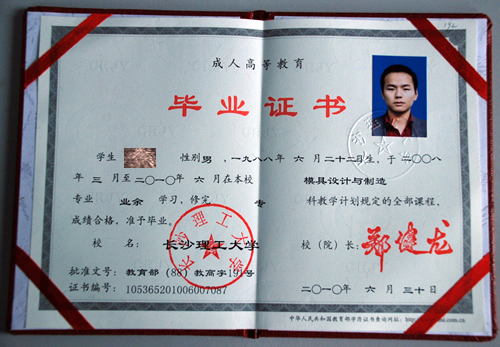 194
成人高等教育
毕业证书
学生 性别男,一九八八年六月二十二日生,于二〇〇八
年三月至二〇一〇年六月在本校 模具设计与制造
专业 业余 学习,修完 专 科教学计划规定的全部课程,
成绩合格,准予毕业。
校 名: 长沙理工大学 校(院)长: 郑健龙
批准文号: 教育部(88)教高字191号
证书编号: 105365201006007087 二〇一〇年六月三十日
长沙理工大学
中华人民共和国教育部学历证书查询网址: